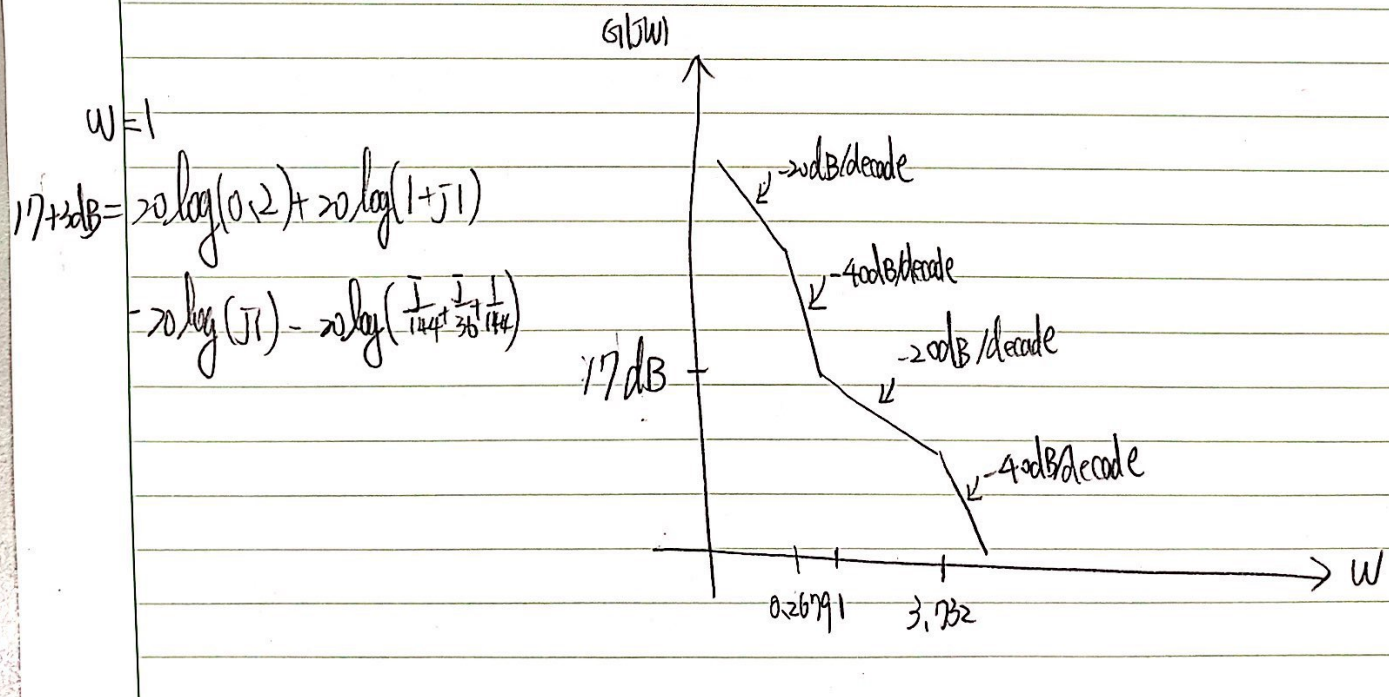 G(JW)
W=1
17+3dB= 20log(0.2)+20log(1+J1)
-20log(J1)-20log(J/144+J/36+1/144)
-20dB/decade
-40dB/decade
-20dB/decade
17dB
-40dB/decade
W
0.2679 1 3.732